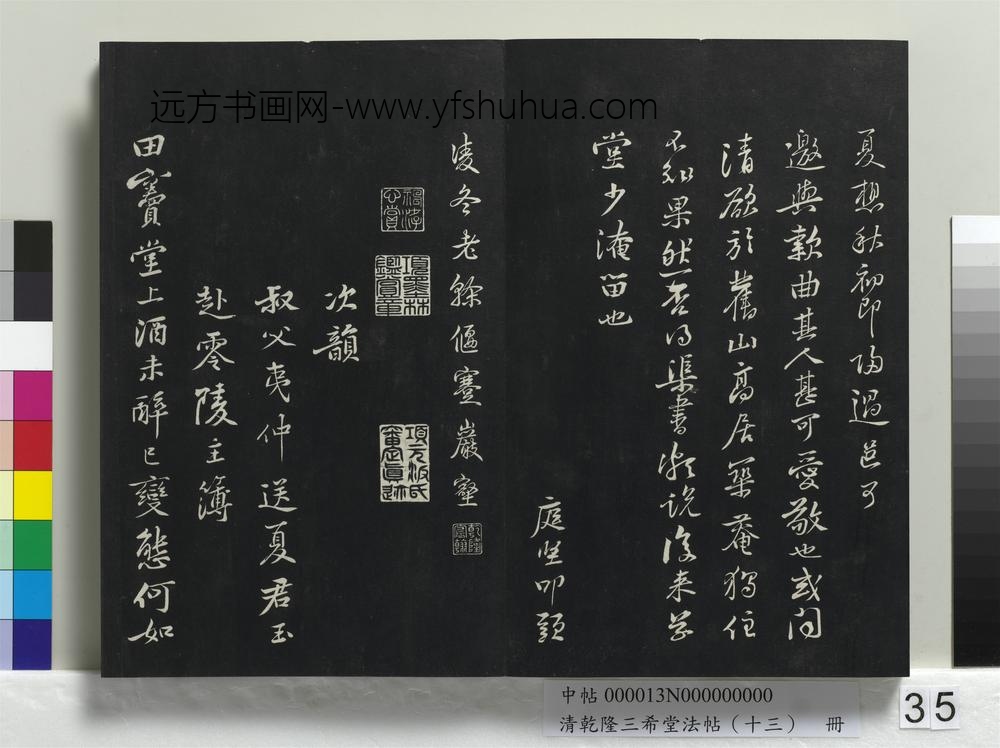 远方书画网-www.yfshuhua.com
夏想秋初即歸過邑可
邀與款曲其人甚可愛敬也或聞
清欲於舊山高居築菴獨住
不知果然否得渠書頗說後來草
堂少淹留也
庭堅叩頭
凌冬老榦偃蹇巖壑
乾隆宸翰
項墨林鑑賞章
項元汴氏審定真迹
次韻
叔父夷仲送夏君玉
赴零陵主簿
田竇堂上酒未醉已變態何如
中帖 000013N000000000
清乾隆三希堂法帖（十三） 冊
35